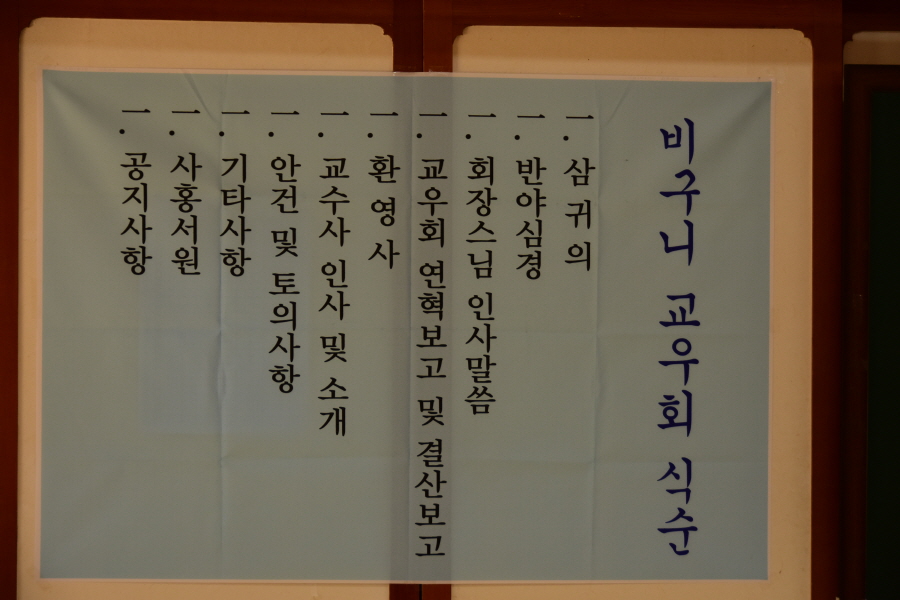 비구니 교우회 식순
一. 삼귀의
一. 반야심경
一. 회장스님 인사말씀
一. 교우회 연혁보고 및 결산보고
一. 환영사
一. 교수사 인사 및 소개
一. 안건 및 토의사항
一. 기타사항
一. 사홍서원
一. 공지사항